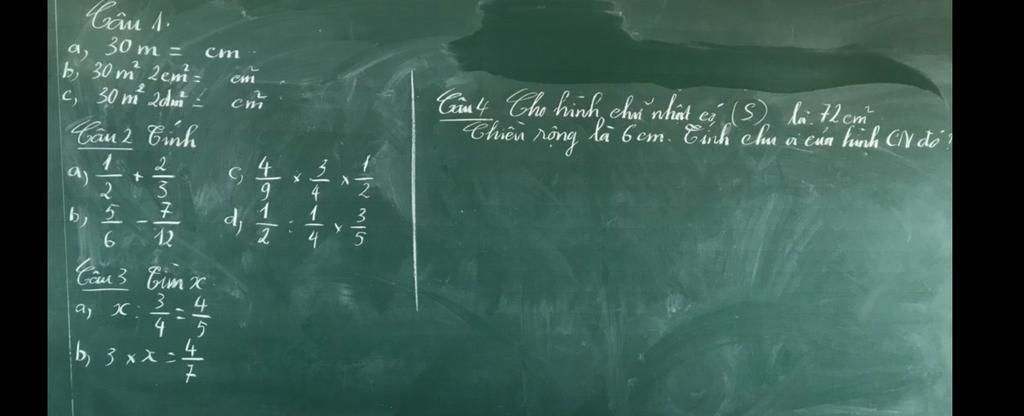 Câu 1.
a, 30 m = cm
b, 30 m² 2cm² = cm²
c, 30 m² 2dm² = cm²
Câu 2 Tính
a, 1/2 + 2/3
b, 5/6 - 7/12
c, 4/9 × 3/4 × 1/2
d, 1/2 : 1/4 × 3/5
Câu 3 Tìm x
a, x : 3/4 = 4/5
b, 3 × x = 4/7
Câu 4 Cho hình chữ nhật có (S) là 72cm²
Chiều rộng là 6cm. Tính chu vi của hình CN đó?